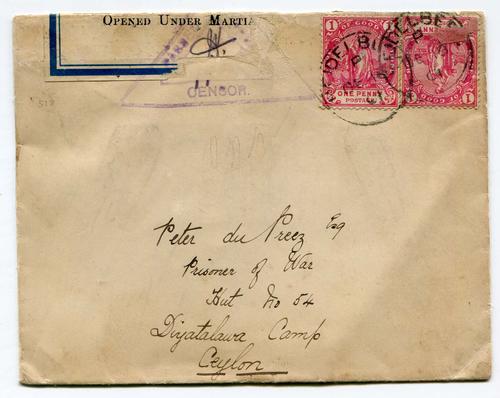 OPENED UNDER MARTIA
CENSOR.
1 OF GOOD 1
ONE PENNY
POSTAGE
1
1
Peter du Preez Esq
Prisoner of War
Hut No 54
Diyatalawa Camp
Ceylon